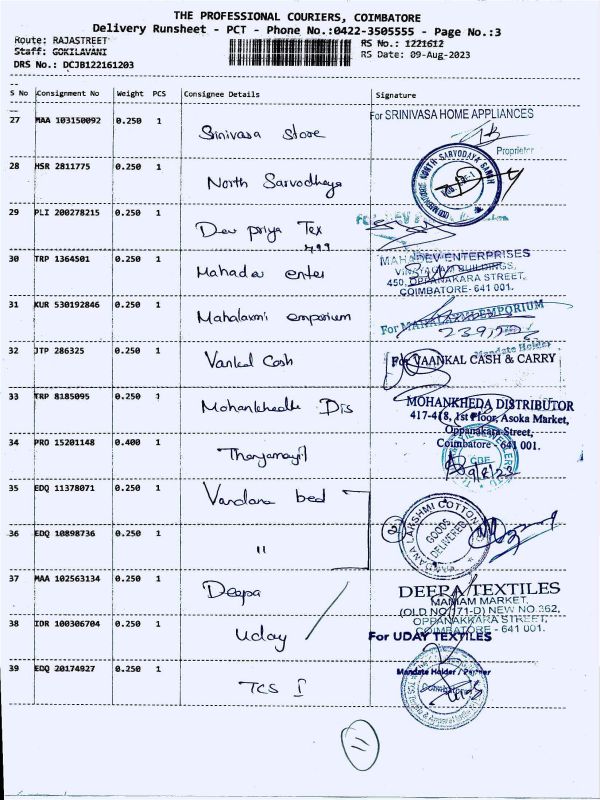 THE PROFESSIONAL COURIERS, COIMBATORE
Delivery Runsheet - PCT - Phone No.:0422-3505555 - Page No.:3
Route: RAJASTREET
RS No.: 1221612
Staff: GOKILAVANI
RS Date: 09-Aug-2023
DRS No.: DCJB122161203
S No Consignment No Weight PCS Consignee Details Signature
27 MAA 103150092 0.250 1 Srinivasa store
For SRINIVASA HOME APPLIANCES
Proprietor
28 HSR 2811775 0.250 1 North Sarvodhaya
NORTH SARVODAYA SANGH
29 PLI 200278215 0.250 1 Dev priya Tex
30 TRP 1364501 0.250 1 Mahadev enter
MAHADEV ENTERPRISES
VINAYAGAM BUILDINGS,
450, OPPANAKARA STREET,
COIMBATORE- 641 001.
31 KUR 530192846 0.250 1 Mahalaxmi emporium
For MAHALAXMI EMPORIUM
32 JTP 286325 0.250 1 Vankal Cash
Mandate Holder
For VAANKAL CASH & CARRY
33 TRP 8185095 0.250 1 Mohankheda Dis
MOHANKHEDA DISTRIBUTOR
417-418, 1st Floor, Asoka Market,
Oppanakara Street,
Coimbatore - 641 001.
34 PRO 15201148 0.400 1 Thangamayil
CBE
9/8/23
35 EDQ 11378071 0.250 1 Vandana bed
LAKSHMI COTTON
GOODS
DELIVERED
36 EDQ 10898736 0.250 1 "
2
37 MAA 102563134 0.250 1 Deepa
DEEPA TEXTILES
MANIAM MARKET,
(OLD NO.171-D) NEW NO.362,
OPPANAKKARA STREET,
COIMBATORE - 641 001.
38 IDR 100306704 0.250 1 Uday
For UDAY TEXTILES
Mandate Holder / Partner
39 EDQ 20174927 0.250 1 TCS I
Coimbatore